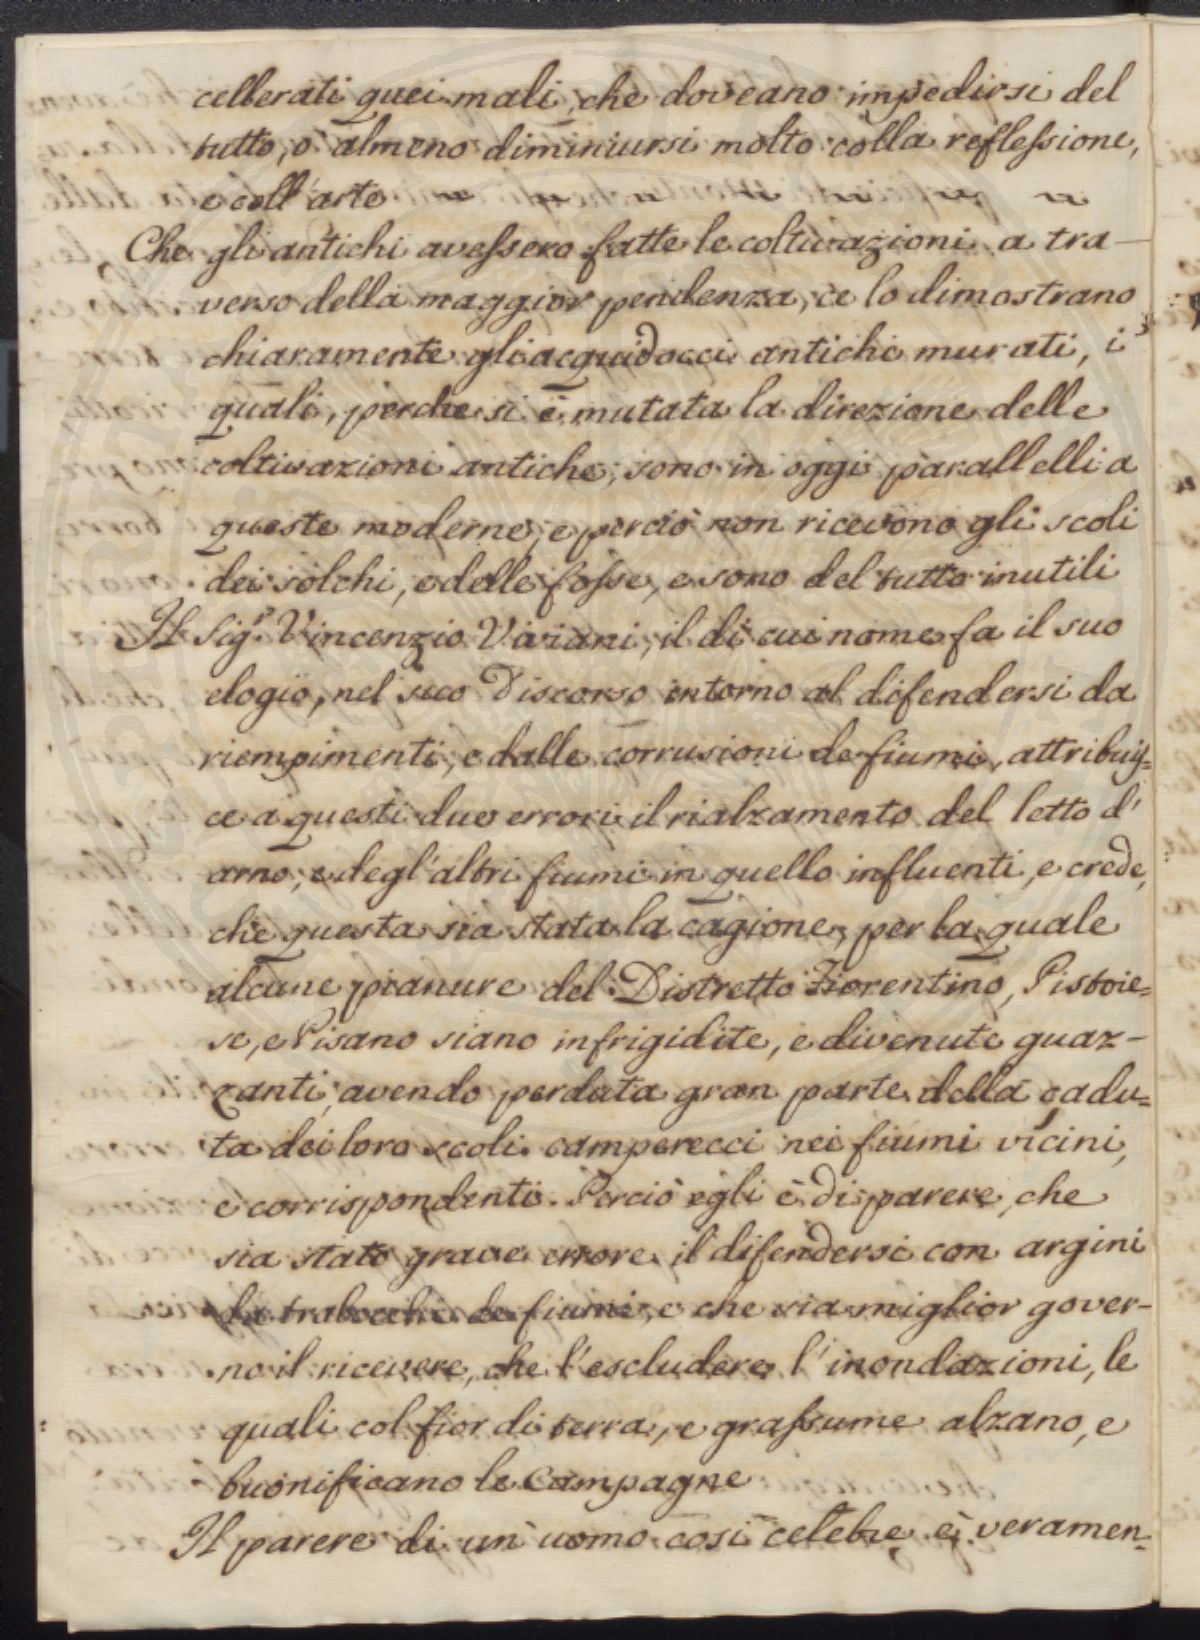 cellerati quei mali, che doveano impedirsi del
tutto, o almeno diminiursi molto colla reflessione,
e coll'arte
Che gli antichi avessero fatte le coltivazioni a tra-
verso della maggior pendenza, ce lo dimostrano
chiaramente gli acquidocci antichi murati, i
quali, perche si è mutata la direzione delle
coltivazioni antiche, sono in oggi parallelli a
queste moderne, e perciò non ricevono gli scoli
dei solchi, e delle fosse, e sono del tutto inutili
Il Sig.r Vincenzio Viviani, il di cui nome fa il suo
elogio, nel suo Discorso intorno al difendersi da
riempimenti, e dalle corrusioni de fiumi, attribuis=
ce a questi due errori il rialzamento del letto d'
arno, e degl'altri fiumi in quello influenti, e crede,
che questa sia stata la cagione, per la quale
alcune pianure del Distretto Fiorentino, Pistoie=
se, e Pisano siano infrigidite, e divenute guaz-
zanti, avendo perduta gran parte della cadu=
ta dei loro scoli camperecci nei fiumi vicini,
e corrispondenti. Perciò egli è di parere, che
sia stato grave errore il difendersi con argini
da trabocchi de fiumi, e che sia miglior gover-
no il ricevere, che l'escludere l'inondazioni, le
quali col fior di terra, e grassume alzano, e
buonificano le Campagne
Il parere di un uomo così celebre è veramen=